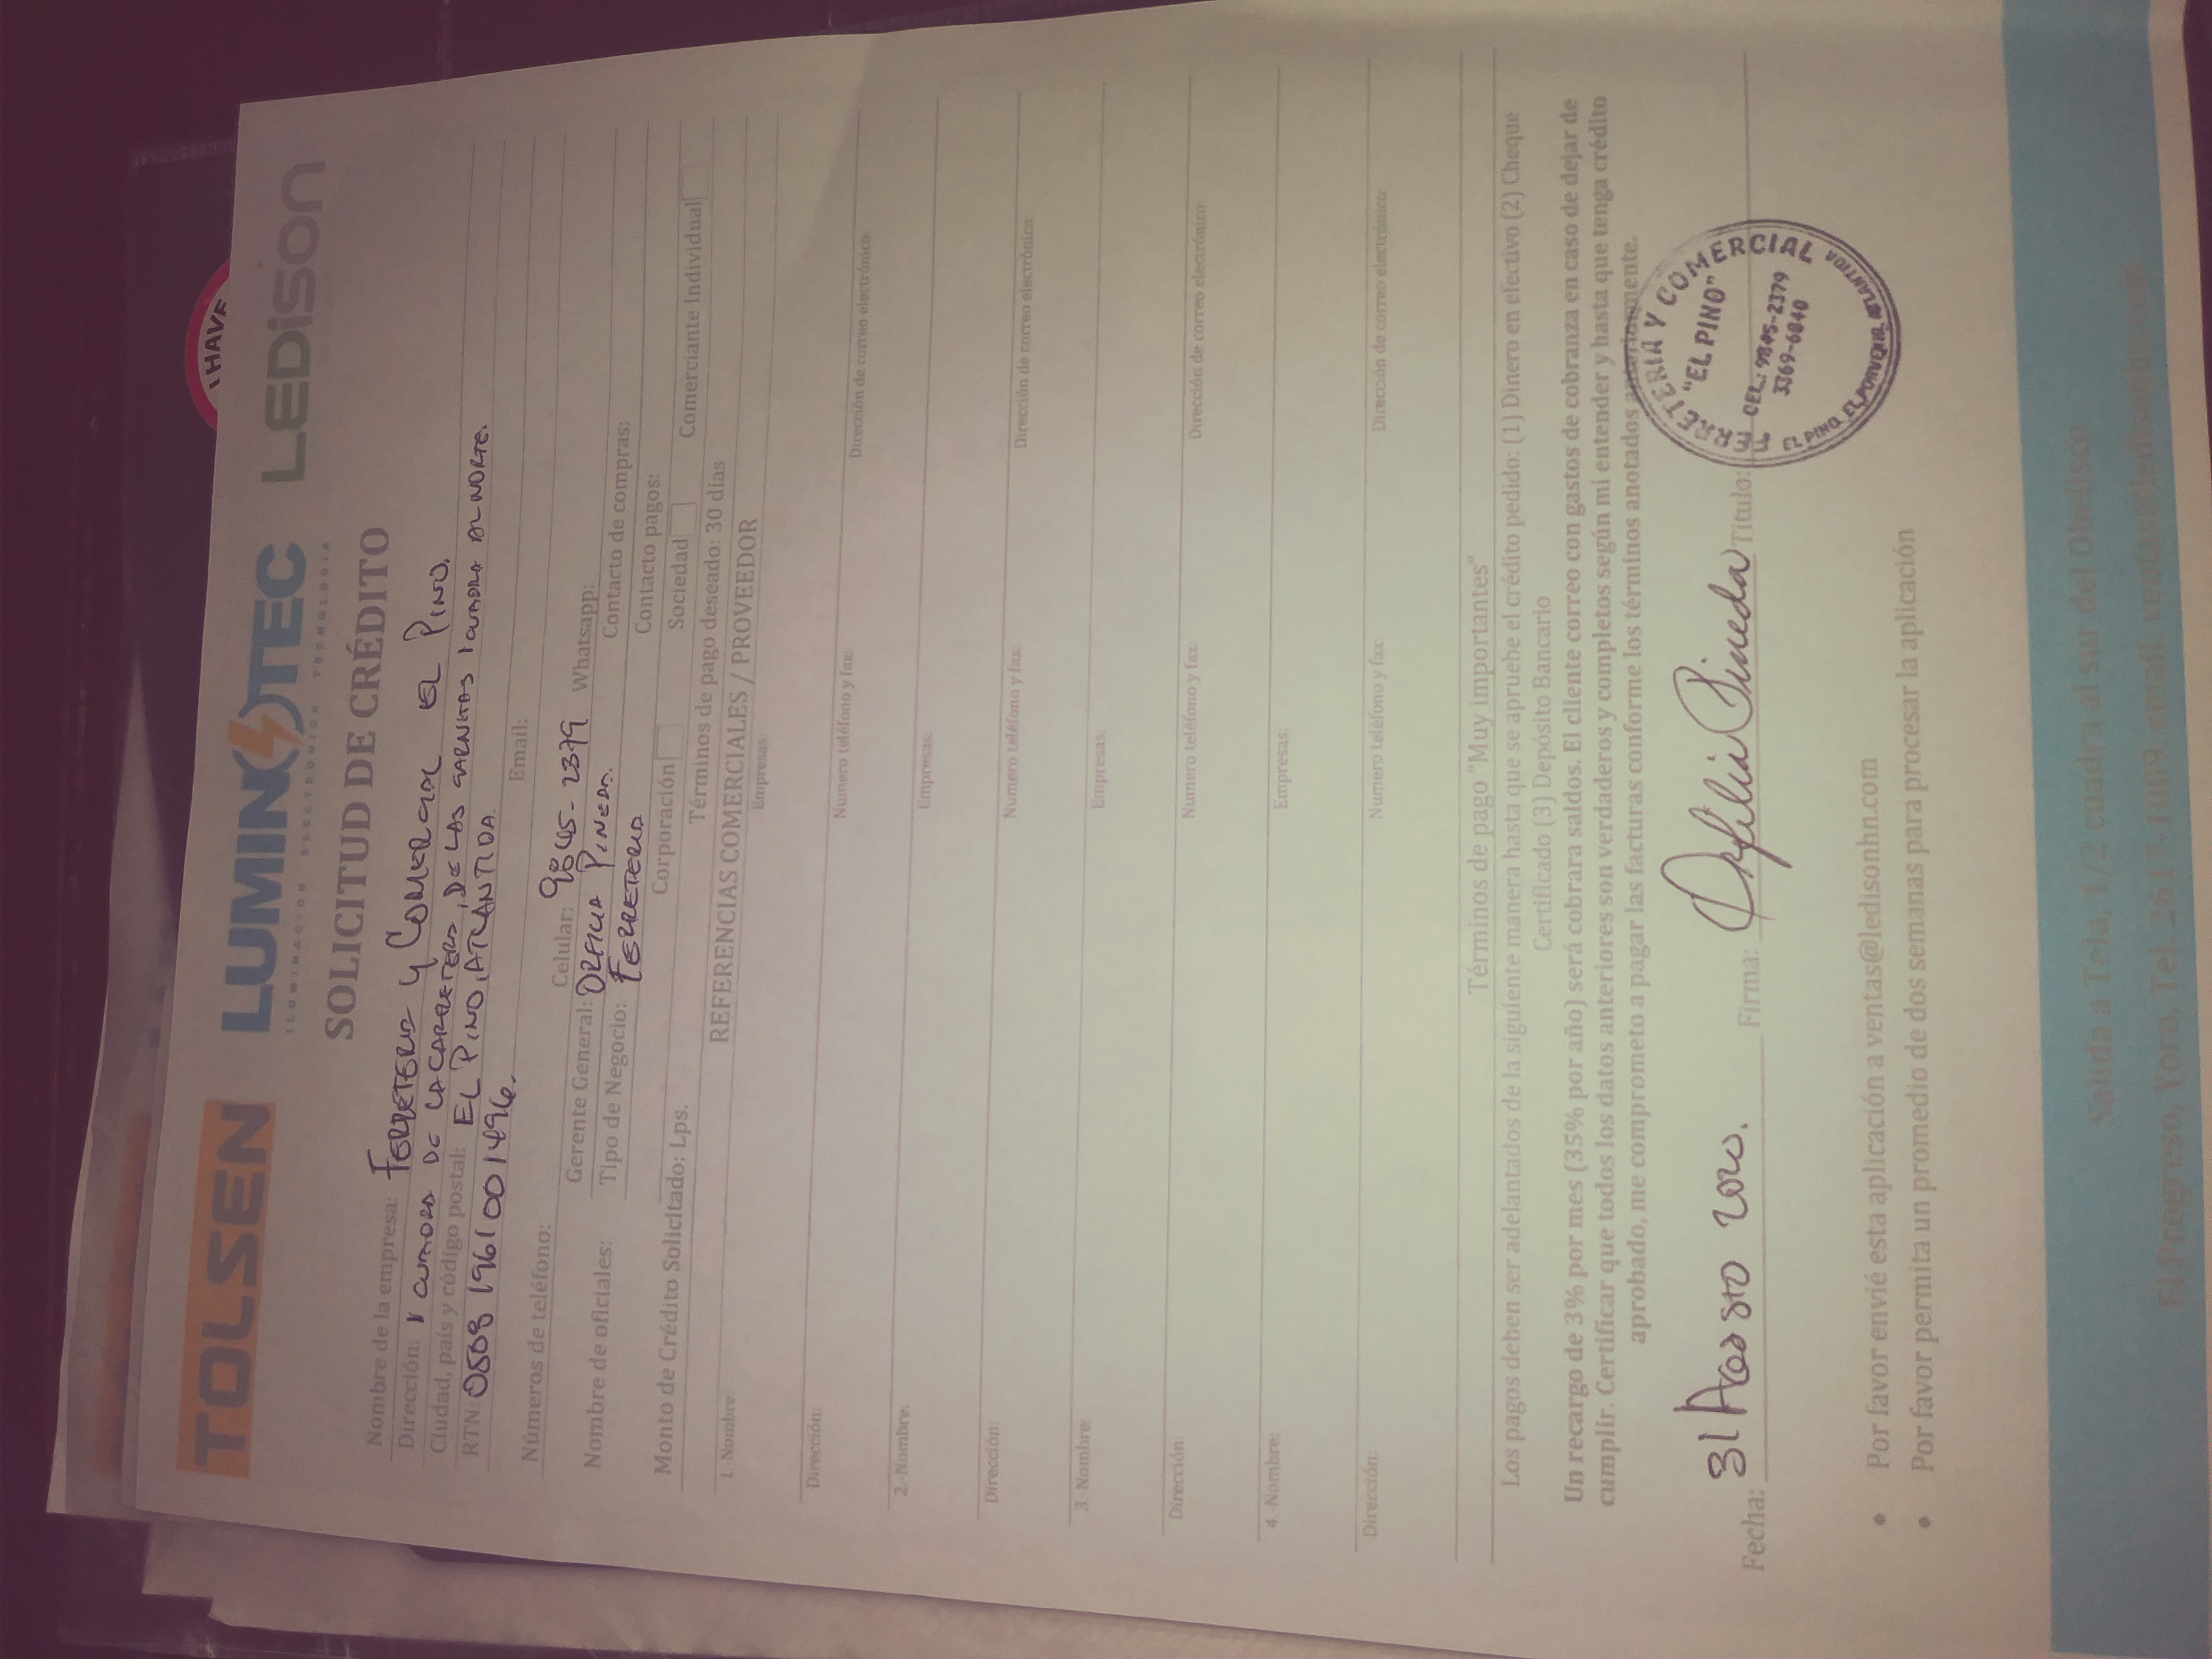 I HAVE
TOLSEN LUMINOTEC LEDISON
ILUMINACION ELECTRONICA TECNOLOGIA
SOLICITUD DE CRÉDITO
Nombre de la empresa: FERRETERIA Y COMERCIAL EL PINO.
Dirección: 1 CUADRA DE LA CARRETERA, DE LAS 1 CUADRA AL NORTE.
Ciudad, país y código postal: EL PINO, ATLANTIDA.
RTN: Email:
Números de teléfono: Celular: 9845-2379 Whatsapp:
Nombre de oficiales: Gerente General: ORFILIA PINEDA. Contacto de compras:
Tipo de Negocio: FERRETERIA Contacto pagos:
Corporación Sociedad Comerciante Individual
Monto de Crédito Solicitado: Lps. Términos de pago deseado: 30 días
REFERENCIAS COMERCIALES / PROVEEDOR
1.-Nombre: Empresas:
Dirección: Numero teléfono y fax: Dirección de correo electrónico:
2.-Nombre: Empresas:
Dirección: Numero teléfono y fax: Dirección de correo electrónico:
3.-Nombre: Empresas:
Dirección: Numero teléfono y fax: Dirección de correo electrónico:
4.-Nombre: Empresas:
Dirección: Numero teléfono y fax: Dirección de correo electrónico:
Términos de pago "Muy importantes"
Los pagos deben ser adelantados de la siguiente manera hasta que se apruebe el crédito pedido: (1) Dinero en efectivo (2) Cheque
Certificado (3) Depósito Bancario
Un recargo de 3% por mes (35% por año) será cobrara saldos. El cliente correo con gastos de cobranza en caso de dejar de
cumplir. Certificar que todos los datos anteriores son verdaderos y completos según mi entender y hasta que tenga crédito
aprobado, me comprometo a pagar las facturas conforme los términos anotados anteriormente.
Fecha: 31 Agosto 2020. Firma: Orfilia Pineda Titulo:
FERRETERIA Y COMERCIAL
"EL PINO"
CEL.: 9845-2379
3369-6840
EL PINO, EL PORVENIR, ATLANTIDA
• Por favor envié esta aplicación a ventas@ledisonhn.com
• Por favor permita un promedio de dos semanas para procesar la aplicación
Salida a Tela, 1/2 cuadra al sur del Obelisco
El Progreso, Yoro, Tel. 2617-1009, email: ventas@ledisonhn.com